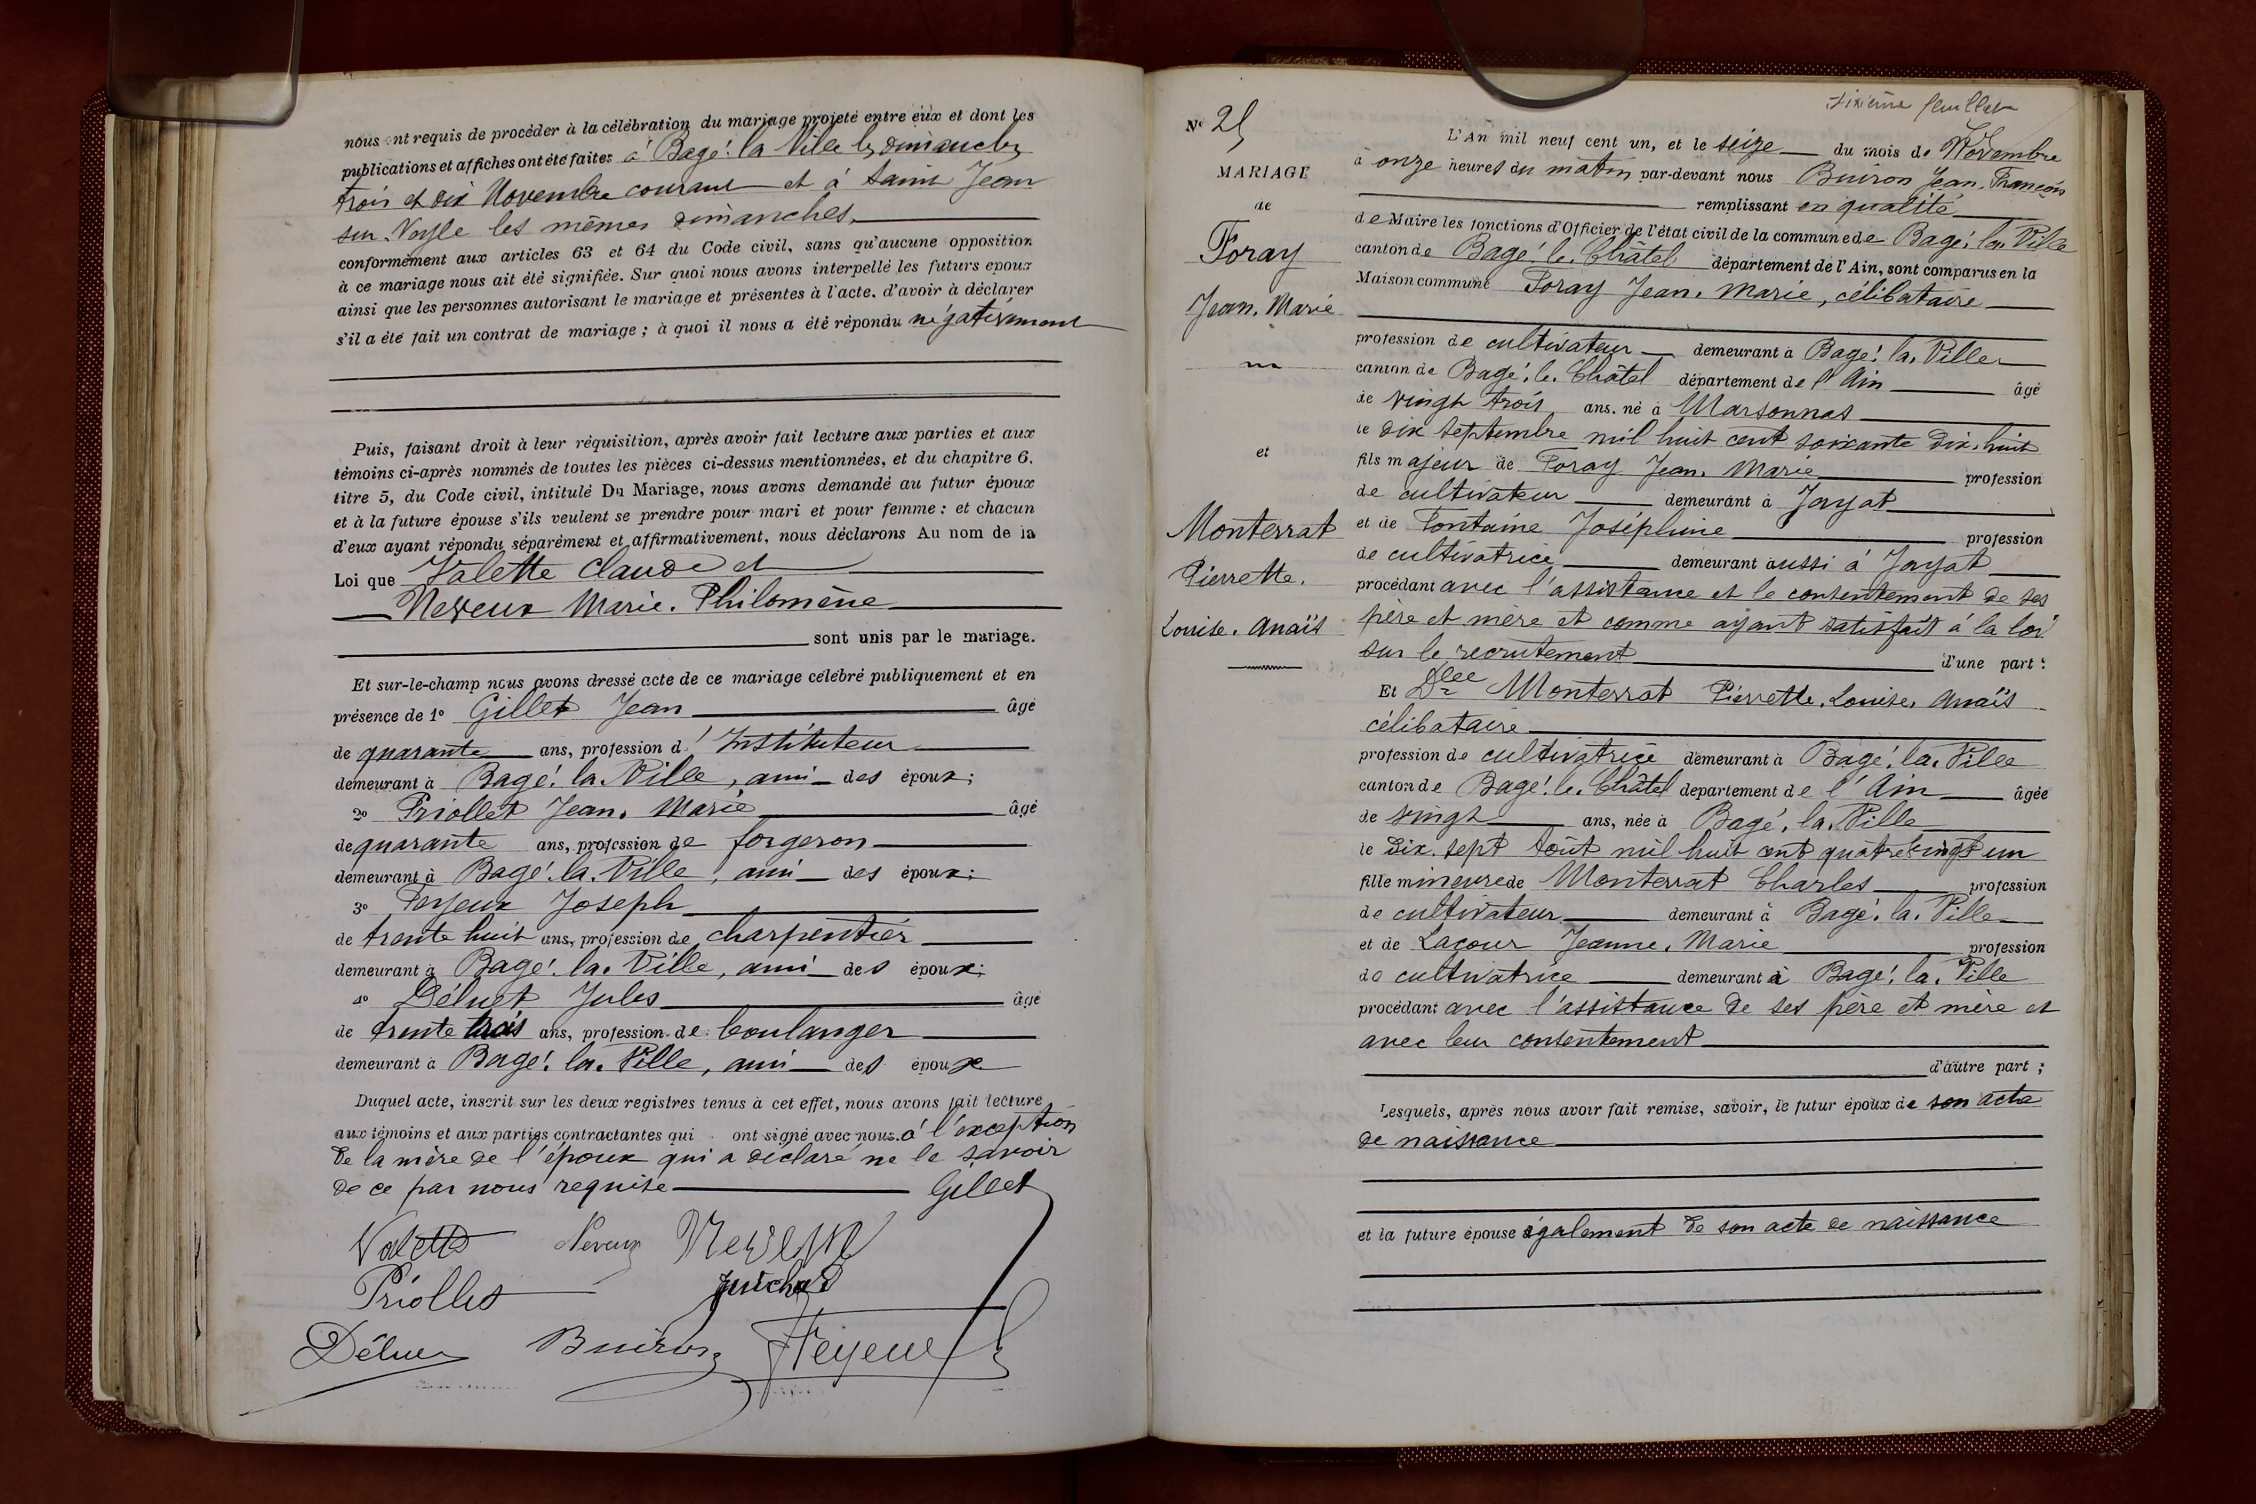 nous ont requis de procéder à la célébration du mariage projeté entre eux et dont les
publications et affiches ont été faites à Bagé-la-Ville les dimanches
trois et dix Novembre courant et à Saint Jean
sur-Veyle les mêmes dimanches.
conformément aux articles 63 et 64 du Code civil, sans qu'aucune opposition
à ce mariage nous ait été signifiée. Sur quoi nous avons interpellé les futurs époux
ainsi que les personnes autorisant le mariage et présentes à l'acte, d'avoir à déclarer
s'il a été fait un contrat de mariage ; à quoi il nous a été répondu négativement
Puis, faisant droit à leur réquisition, après avoir fait lecture aux parties et aux
témoins ci-après nommés de toutes les pièces ci-dessus mentionnées, et du chapitre 6,
titre 5, du Code civil, intitulé Du Mariage, nous avons demandé au futur époux
et à la future épouse s'ils veulent se prendre pour mari et pour femme : et chacun
d'eux ayant répondu séparément et affirmativement, nous déclarons Au nom de la
Loi que Valette Claude et
Neveux Marie-Philomène
sont unis par le mariage.
Et sur-le-champ nous avons dressé acte de ce mariage célébré publiquement et en
présence de 1o Gillet Jean âgé
de quarante ans, profession d'Instituteur
demeurant à Bagé-la-Ville, ami des époux ;
2o Priollet Jean-Marie âgé
de quarante ans, profession de forgeron
demeurant à Bagé-la-Ville, ami des époux ;
3o Joseph
de trente huit ans, profession de charpentier
demeurant à Bagé-la-Ville, ami des époux ;
4o Déluet Jules âgé
de trente trois ans, profession de boulanger
demeurant à Bagé-la-Ville, ami des époux
Duquel acte, inscrit sur les deux registres tenus à cet effet, nous avons fait lecture
aux témoins et aux parties contractantes qui ont signé avec nous à l'exception
de la mère de l'époux qui a déclaré ne le savoir
de ce par nous requise Gillet
Valette Neveux Neveux
Priollet
Buiron
Sixième feuillet
No 25
MARIAGE
de
Foray
Jean-Marie
et
Monterrat
Pierrette-
Louise-Anaïs
L'An mil neuf cent un, et le seize du mois de Novembre
à onze heures du matin par-devant nous Buiron Jean-François
remplissant en qualité
de Maire les fonctions d'Officier de l'état civil de la commune de Bagé-la-Ville
canton de Bagé-le-Châtel département de l'Ain, sont comparus en la
Maison commune Foray Jean-Marie, célibataire
profession de cultivateur demeurant à Bagé-la-Ville
canton de Bagé-le-Châtel département de l'Ain âgé
de vingt trois ans, né à Marsonnas
le dix septembre mil huit cent soixante dix-huit
fils majeur de Foray Jean-Marie profession
de cultivateur demeurant à Jayat
et de Fontaine Joséphine profession
de cultivatrice demeurant aussi à Jayat
procédant avec l'assistance et le consentement de ses
père et mère et comme ayant satisfait à la loi
sur le recrutement d'une part :
Et Dlle Monterrat Pierrette-Louise-Anaïs
célibataire
profession de cultivatrice demeurant à Bagé-la-Ville
canton de Bagé-le-Châtel département de l'Ain âgée
de vingt ans, née à Bagé-la-Ville
le dix-sept août mil huit cent quatre vingt un
fille mineure de Monterrat Charles profession
de cultivateur demeurant à Bagé-la-Ville
et de Lacour Jeanne-Marie profession
de cultivatrice demeurant à Bagé-la-Ville
procédant avec l'assistance de ses père et mère et
avec leur consentement
d'autre part ;
Lesquels, après nous avoir fait remise, savoir, le futur époux de son acte
de naissance
et la future épouse également de son acte de naissance